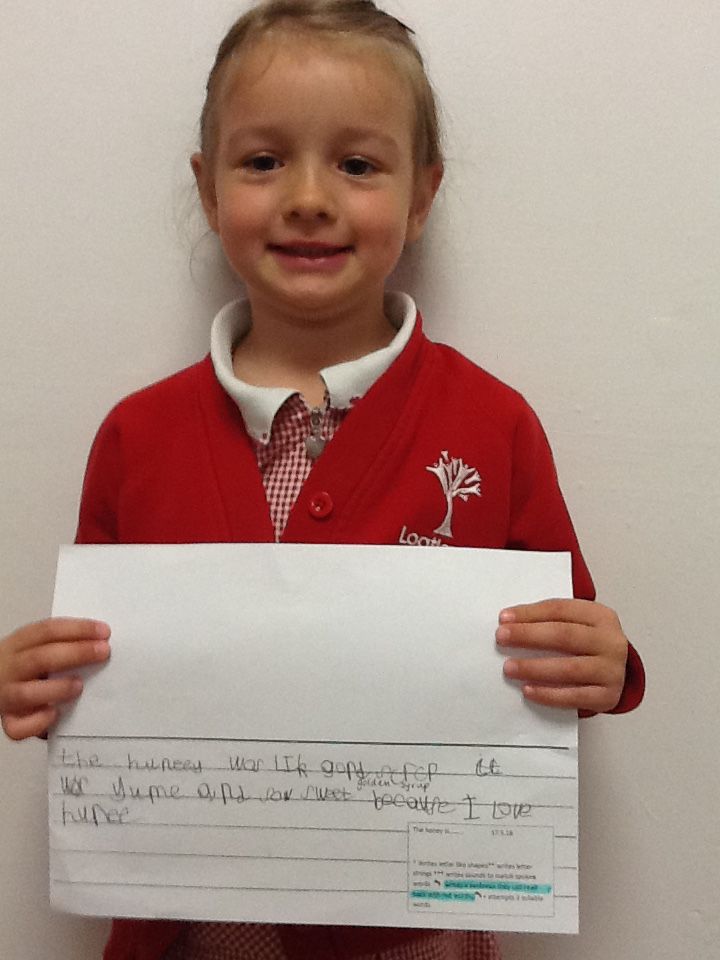 Loatl
the huneey was lik gond serep it
golden syrup
was yume and so sweet because I love
hunee
The honey is...... 17.5.18
* Writes letter like shapes** writes letter
strings *** writes sounds to match spoken
words writes a sentence they can read
back with red words + attempts 2 syllable
words